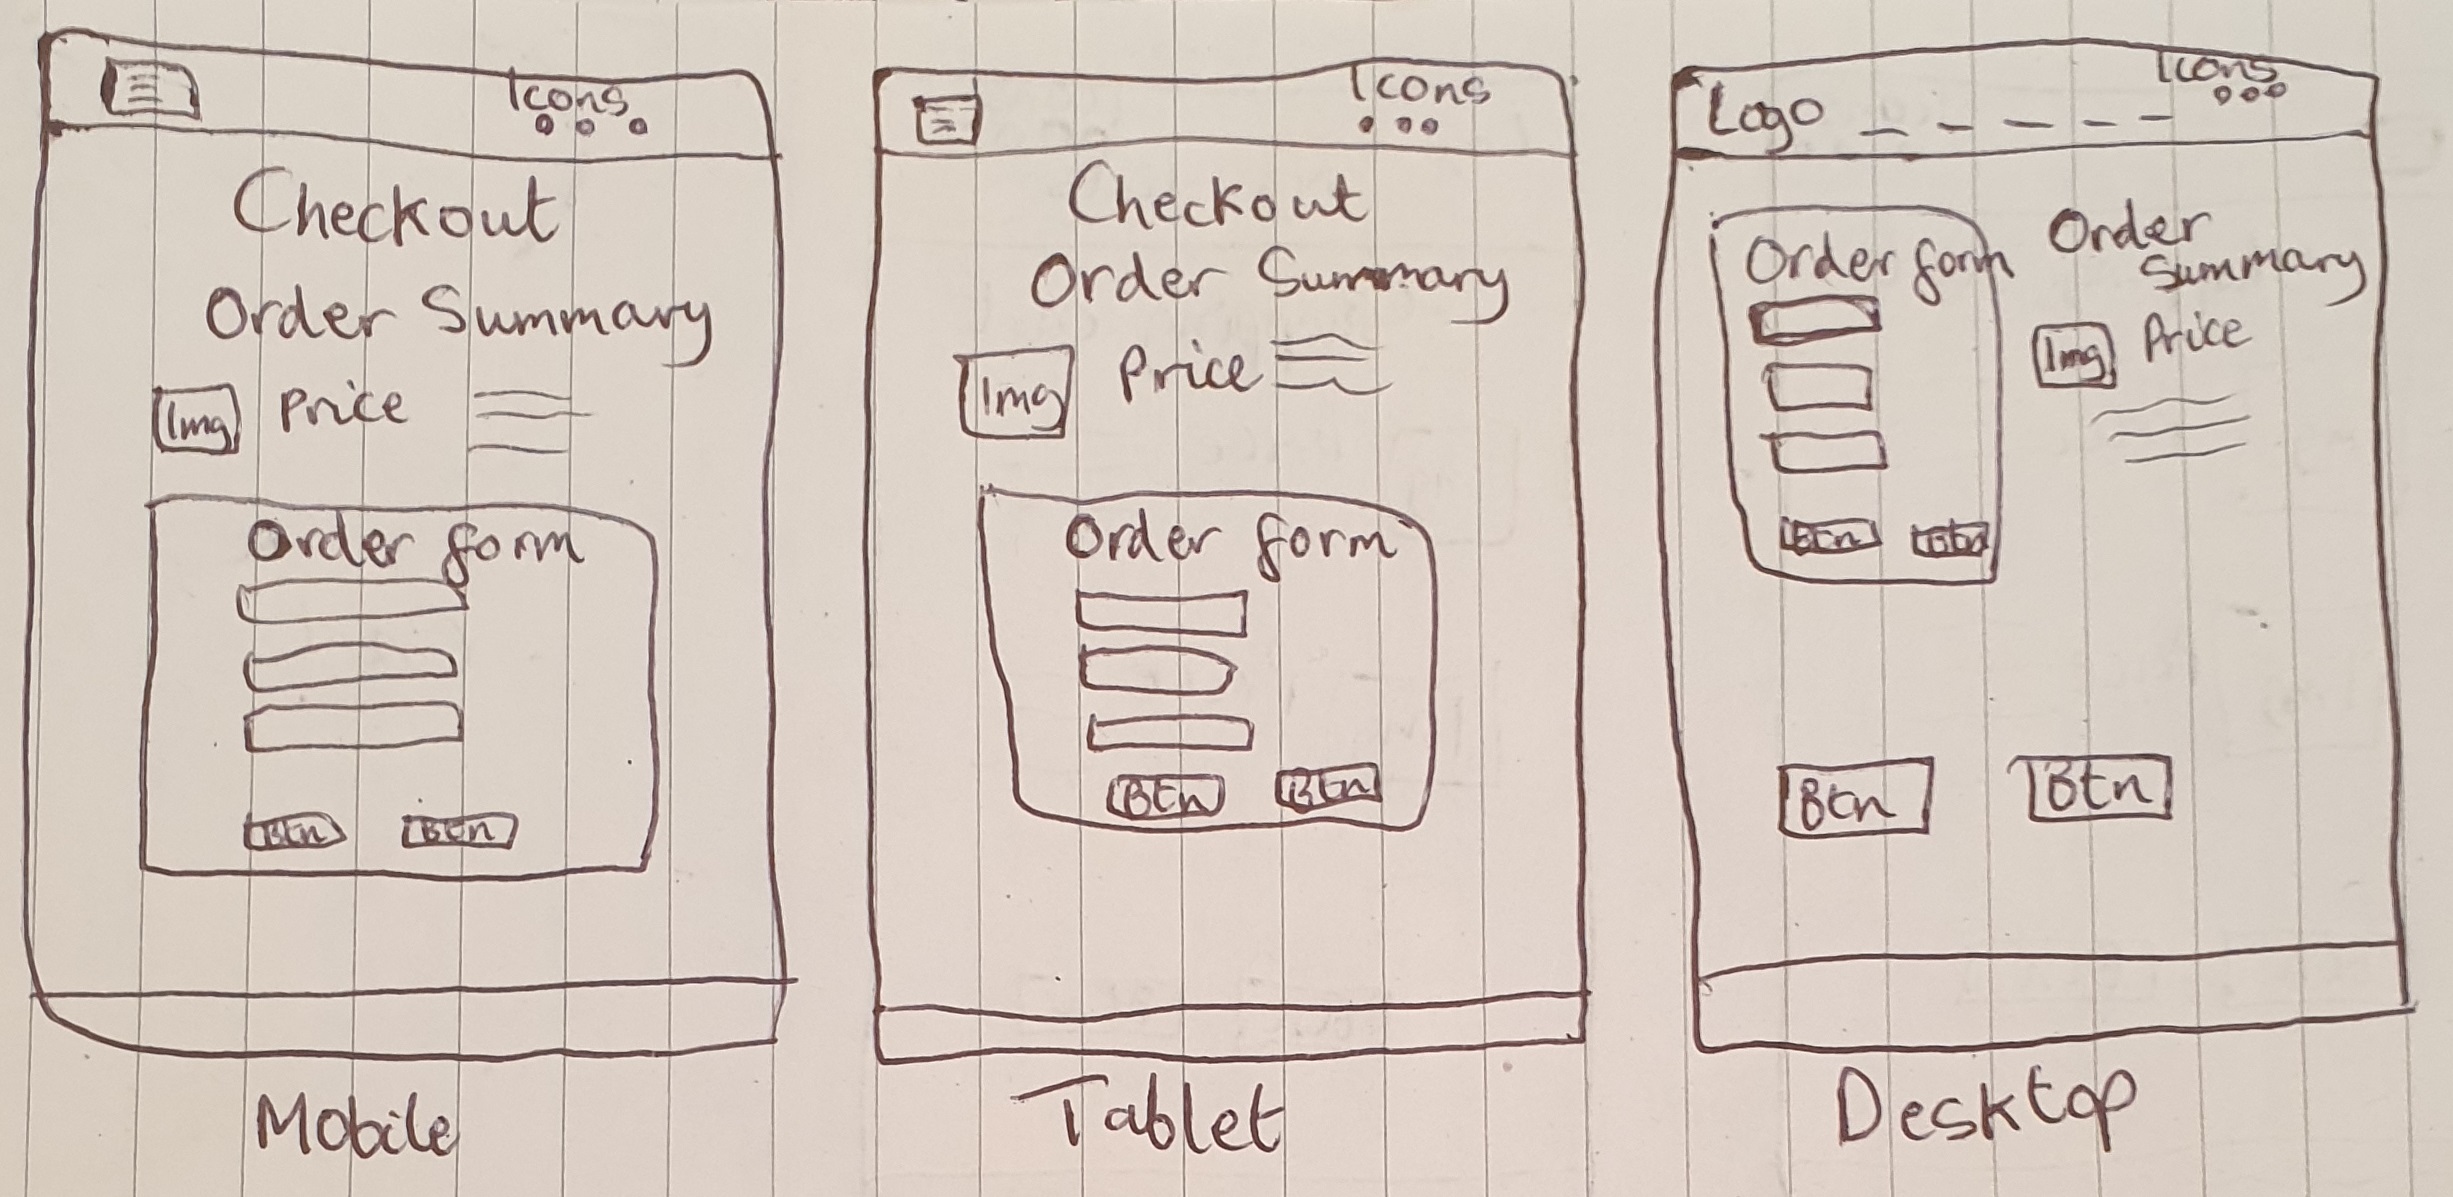 Icons
Checkout
Order Summary
Img Price
Order form
Btn Btn
Mobile
Icons
Checkout
Order Summary
Img Price
Order form
Btn Btn
Tablet
Logo Icons
Order form
Btn Btn
Order
Summary
Img Price
Btn Btn
Desktop